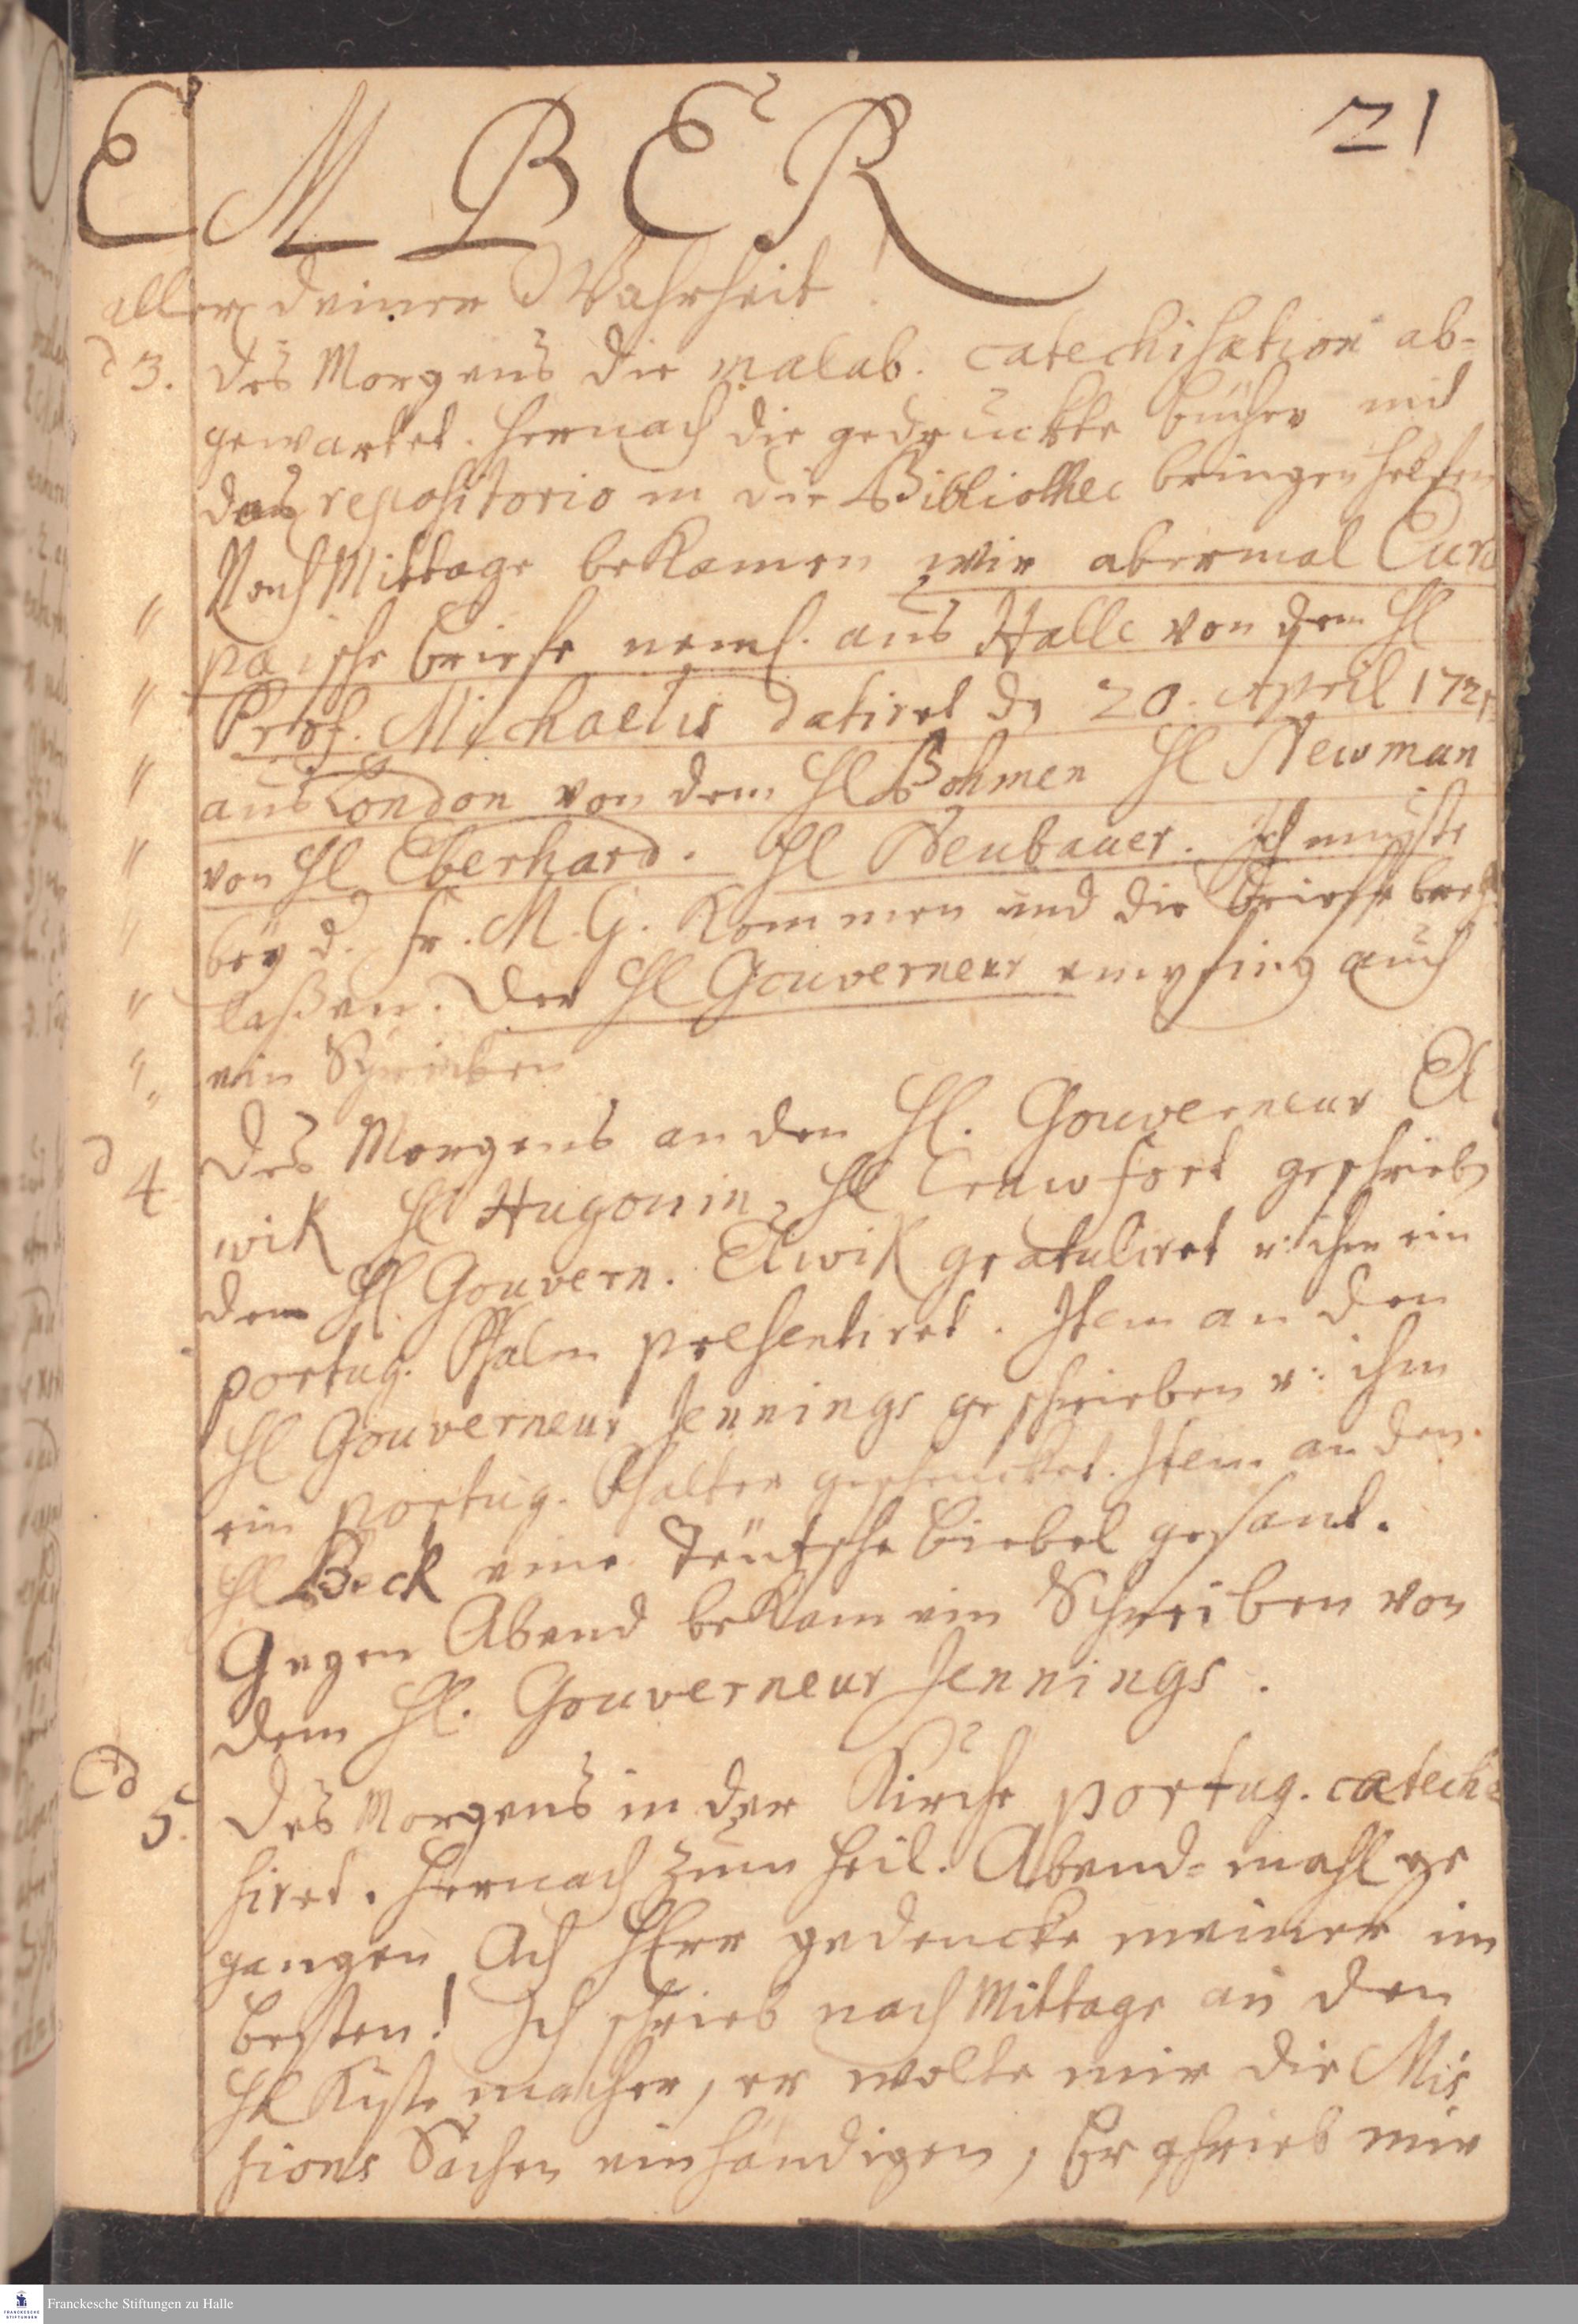 21
EMBER
aller deiner Wahrheit!
d 3. Des Morgens die malab. catechisation ab-
gewartet. Hernach die gedruckte bücher mit
das repositorio in die Bibliothec bringen helfen
Nach Mittage bekamen wir abermal Euro
" paische briefe neml. aus Halle von dem Hl
" Prof. Michaelis datiret d. 20. April 172
" aus London von dem Hl Bohmen Hl Newman
" von Hl Eberhard. Hl Neubauer. Ich muste
" bey d. Fr. M. G. kommen und die brieffe
" laßen. Der Hl Gouverneur empfing auch
" ein Schreiben
d 4 Des Morgens an den Hl. Gouverneur El
wik Hl Hugonin, Hl Crawfort geschrieb
dem Hl. Gouvern. Elwik gratuliret u: ihm ein
portug. Psalm presentiret. Item an den
Hl Gouverneur Jennings geschrieben u: ihm
ein portug. Psalter geschencket. Item an den
Hl Beck eine teutsche biebel gesant.
Gegen Abend bekam ein Schreiben von
dem Hl. Gouverneur Jennings.
d 5. Des Morgens in der Kirche portug. cateche
siret. Hernach zum heil. Abend-mahl ge
gangen Ach HErr gedencke meiner im
besten! Ich schrieb nach Mittage an den
Hl Kistemacher, er wolte mir die Mis
sions Sachen einhändigen, Er schrieb mir
Franckesche Stiftungen zu Halle